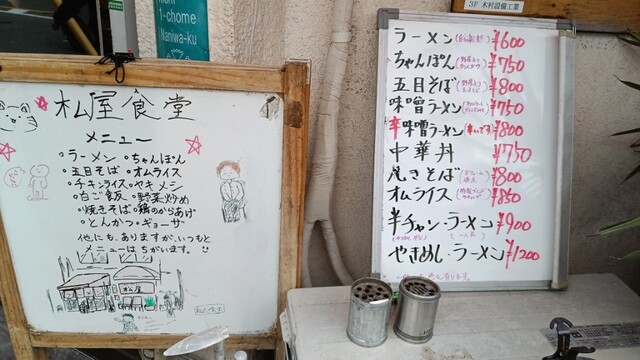 1-chome
Naniwa-ku
松屋食堂
メニュー
・ラーメン ・ちゃんぽん
・五目そば ・オムライス
・チキンライス ・ヤキメシ
・白ご飯 ・野菜炒め
・焼きそば ・鶏のからあげ
・とんかつ ・ギョーザ
他にも、ありますが、いつもと
メニューはちがいます。
松屋
3F 木村設備工業
ラーメン ¥600
ちゃんぽん ¥750
五目そば ¥800
味噌ラーメン ¥750
辛味噌ラーメン ¥800
中華丼 ¥750
焼きそば ¥800
オムライス ¥850
半チャン・ラーメン ¥900
やきめし・ラーメン ¥1200